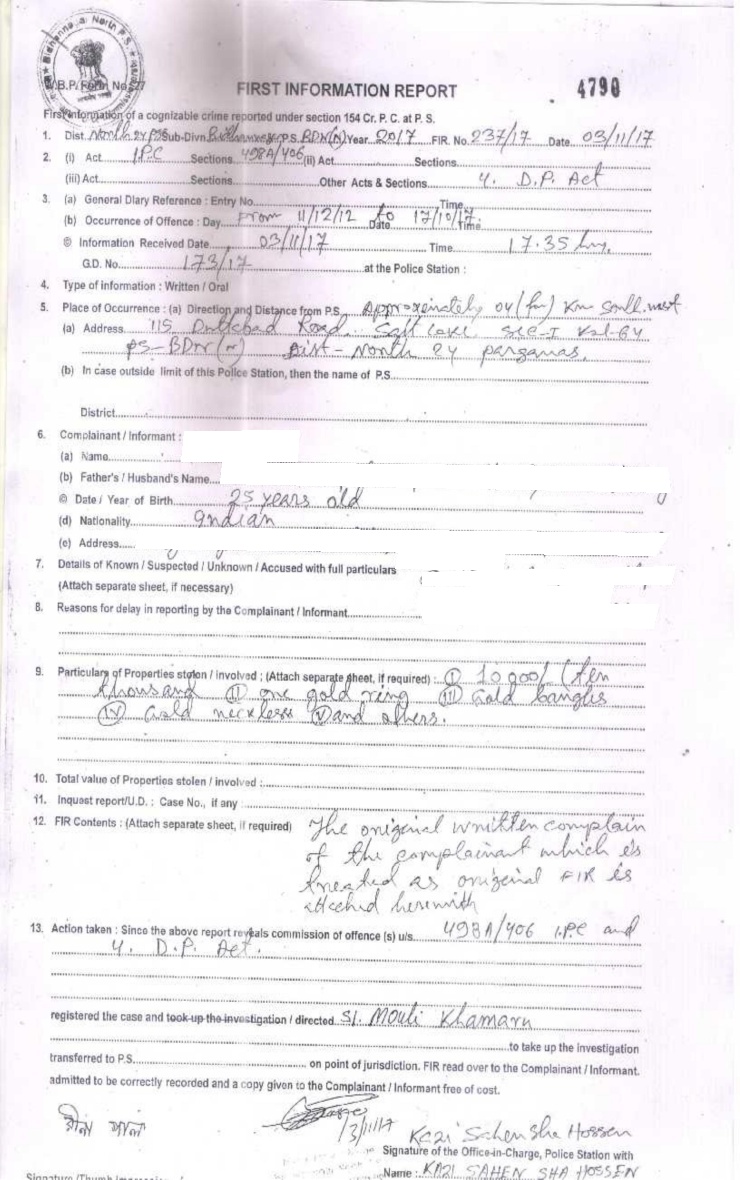 Bidhannagar North P.S.
W.B.P. Form No. 27
FIRST INFORMATION REPORT 4790
First Information of a cognizable crime reported under section 154 Cr. P. C. at P. S.
1. Dist. North 24 PS Sub-Divn. Bidhannagar P.S. BDN(N) Year 2017 FIR. No. 237/17 Date 03/11/17
2. (i) Act I.P.C Sections 498A/406 (ii) Act Sections
(iii) Act Sections Other Acts & Sections 4. D.P. Act
3. (a) General Diary Reference : Entry No. Time
(b) Occurrence of Offence : Day From 11/12/12 to Date 17/10/17. Time
© Information Received Date 03/11/17 Time 17.35 hrs.
G.D. No. 173/17 at the Police Station :
4. Type of information : Written / Oral
5. Place of Occurrence : (a) Direction and Distance from P.S. Approximately 04 Km South west
(a) Address 115 Duttabad Road. Salt Lake Sec-I Kol-64
PS-BDN(N) Dist - North 24 parganas.
(b) In case outside limit of this Police Station, then the name of P.S.
District
6. Complainant / Informant :
(a) Name
(b) Father's / Husband's Name
© Date / Year of Birth 25 years old
(d) Nationality Indian
(e) Address
7. Details of Known / Suspected / Unknown / Accused with full particulars
(Attach separate sheet, if necessary)
8. Reasons for delay in reporting by the Complainant / Informant
9. Particulars of Properties stolen / involved ; (Attach separate sheet, if required) : (I) 10,000/- (ten
thousand (II) one gold ring (III) Gold bangles
(IV) Gold neckless (V) and others.
10. Total value of Properties stolen / involved :
11. Inquest report/U.D. : Case No., if any :
12. FIR Contents : (Attach separate sheet, if required) The original written complain
of the complainant which is
treated as original FIR is
attached herewith
13. Action taken : Since the above report reveals commission of offence (s) u/s. 498A/406 I.PC and
4. D.P. Act.
registered the case and took up the investigation / directed S.I. Mouli Khamaru
to take up the investigation
transferred to P.S. on point of jurisdiction. FIR read over to the Complainant / Informant.
admitted to be correctly recorded and a copy given to the Complainant / Informant free of cost.
3/11/17
Kazi Sahen Sha Hossen
Signature of the Office-in-Charge, Police Station with
Name : KAZI SAHEN SHA HOSSEN